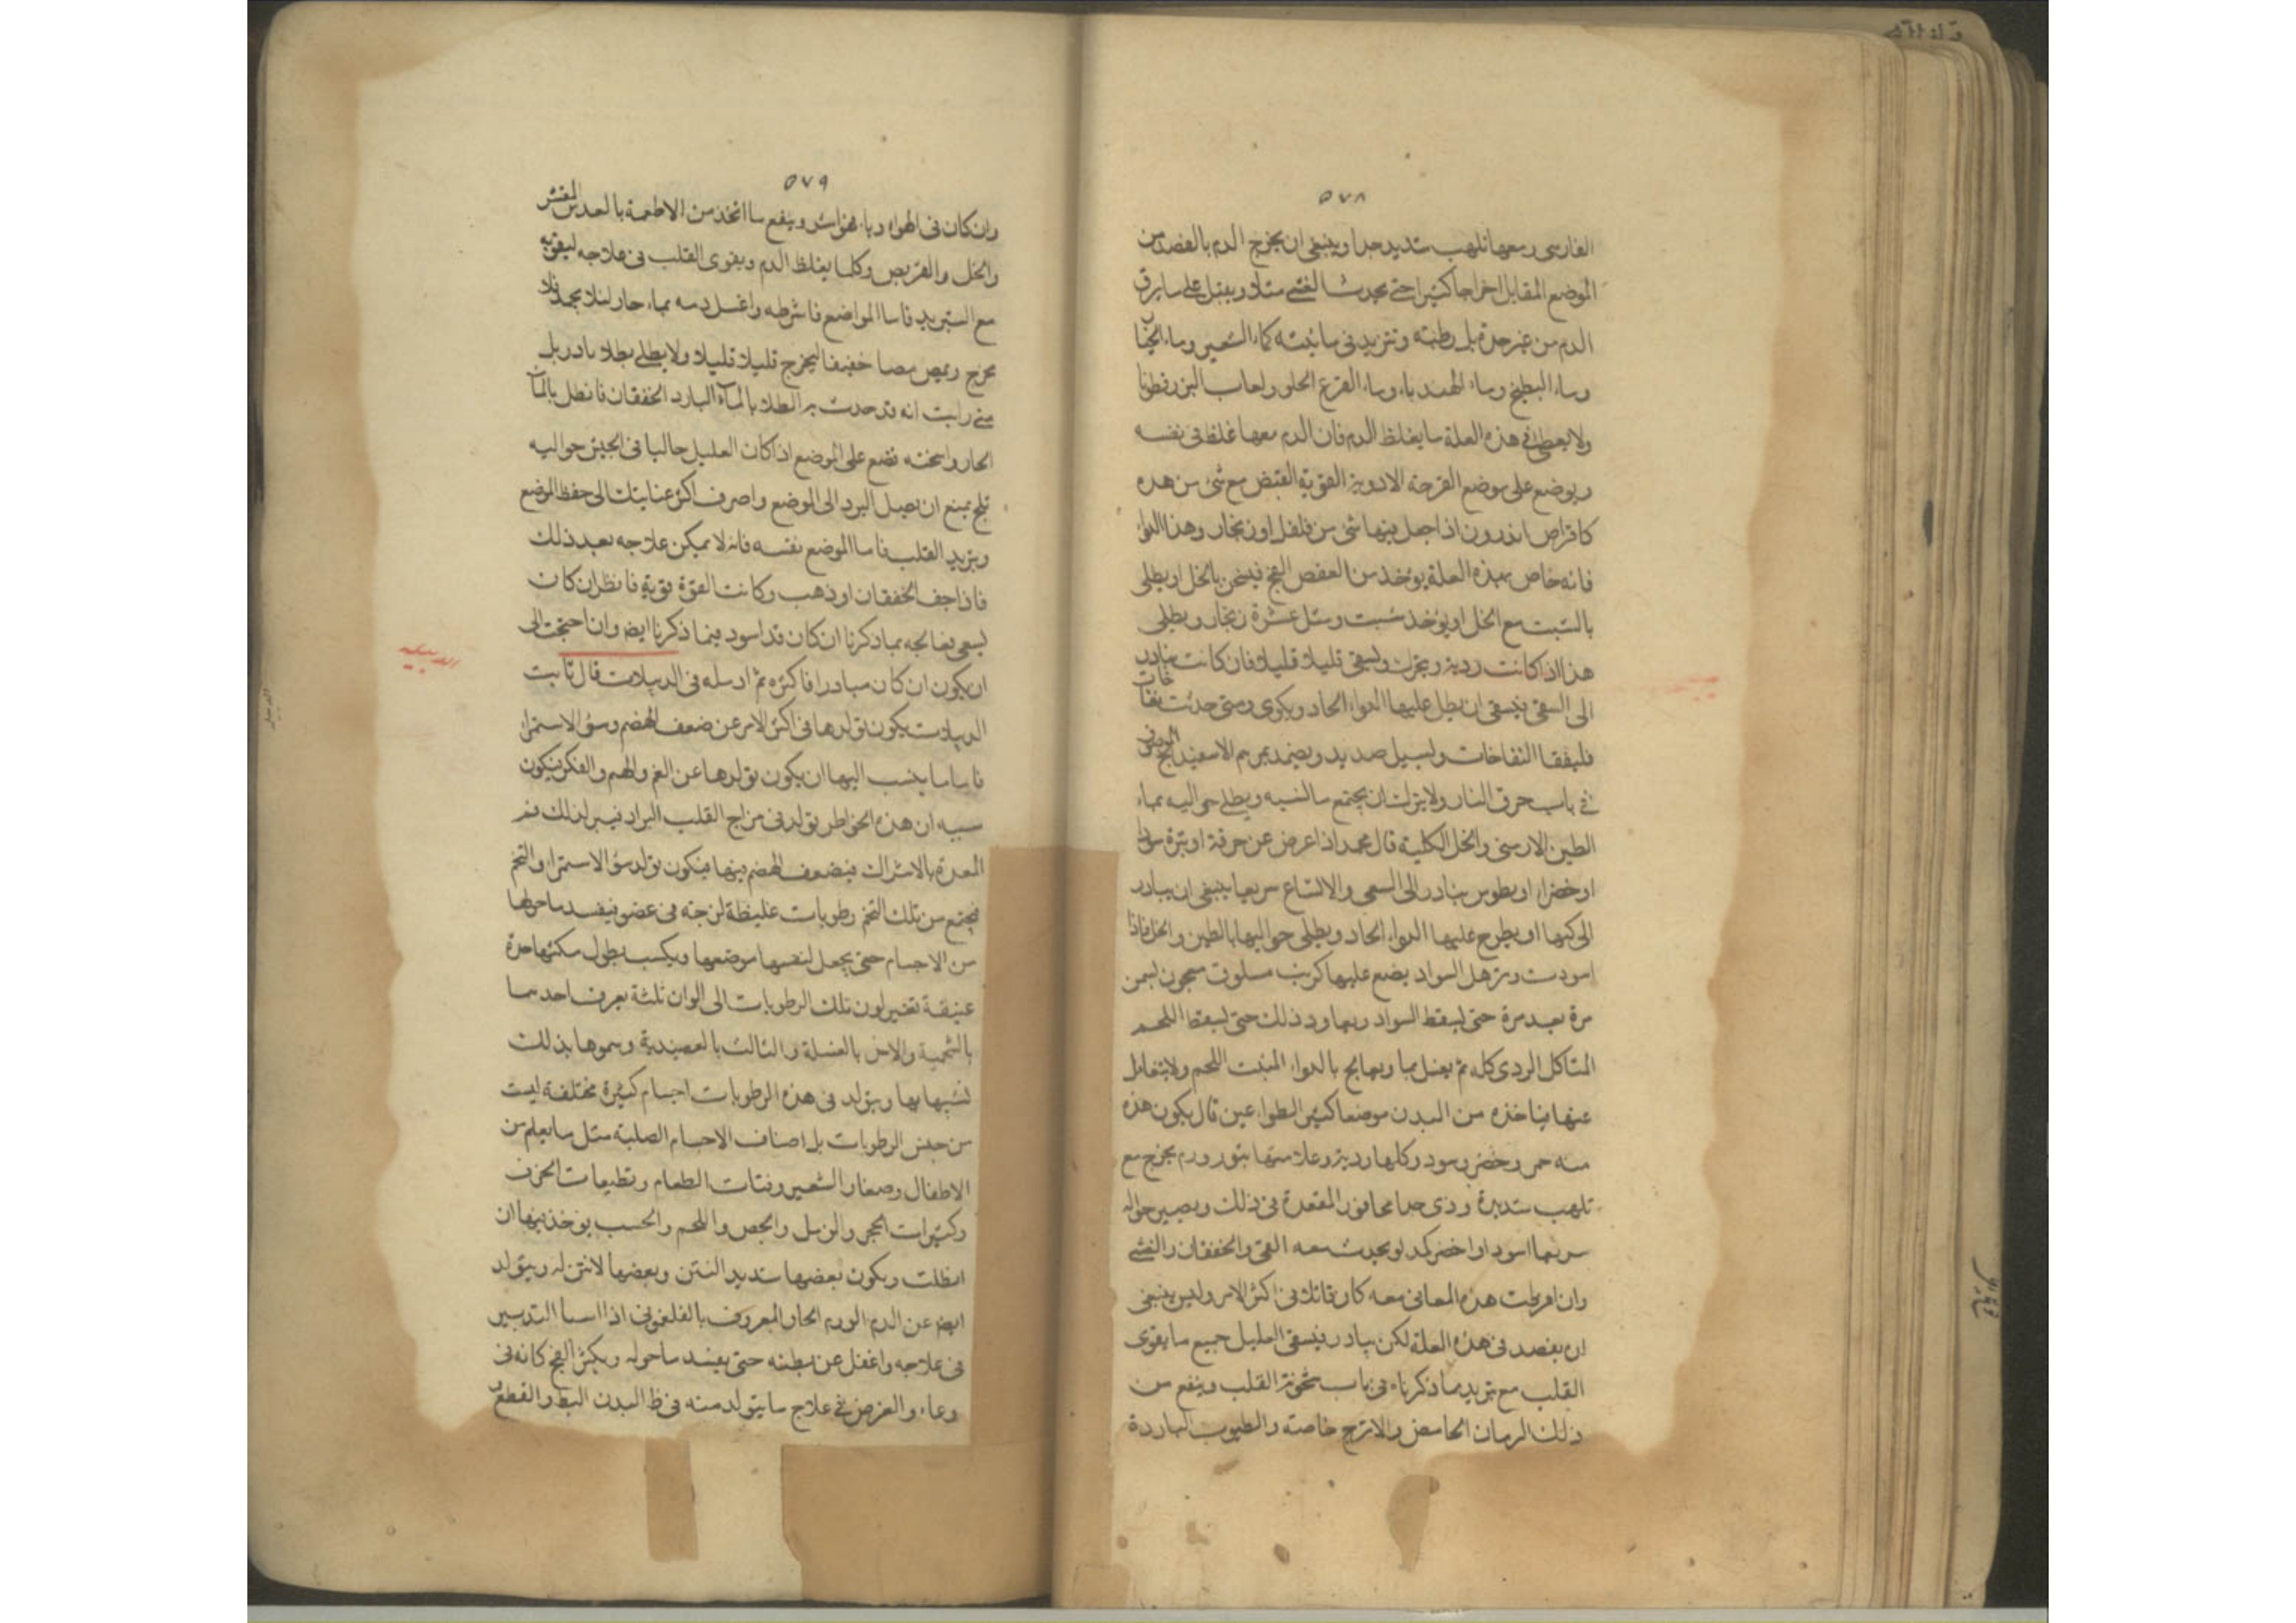 ٥٧٨
الفارسى ومعها تلهب شديد جدا وينبغى ان يخرج الدم بالفصد من
الموضع المقابل اخراجا كثيرا حتى يحدث الغشى مثلا ويقبل على سايرق
الدم من غير حدة بل رطبته وتبريد كماء الشعير وماء الخيار
وماء البطيخ وماء الهندباء وماء القرع الحلو ولعاب البزرقطونا
ولا يعطى فى هذه العلة ما يغلظ الدم فان الدم معها غلظ فى نفسه
ويوضع على موضع القرحة الادوية القوية القبض مع شئ من هذه
كاقراص اندرون اذا جعل فيها شئ من فلفل او زنجار وهذا الدواء
فانه خاص بهذه العلة يوخذ من العفص الفج فيعجن بالخل او يطلى
بالشبت مع الخل او يوخذ شبت ومثل عشرة زنجار ويطلى
هذا اذا كانت ردية ويسقى قليلا قليلا فان كانت تبادر
الى السعى ينبغى ان يطل عليها الدواء الحاد ويكوى ومتى حدثت نفاخات
فليفقا النفاخات ويسيل صديد ويضمد بمرهم الاسفيداج الموصوف
فى باب حرق النار ولا يترك ان يجتمع ويطلى حواليه بماء
الطين الارمنى والخل الكلية قال محمد اذا عرض عن حرقة او بثرة سودا
او خضرا تبادر الى السعى والاتساع سريعا ينبغى ان يبادر
الى كيها او يطرح عليها الدواء الحاد ويطلى حواليها بالطين والخل فاذا
اسودت وترهل السواد يضع عليها كرنب مسلوق معجون بسمن
مرة بعد مرة حتى يسقط السواد ويعاود ذلك حتى يسقط اللحم
المتاكل الردى كله ثم يغسل بما ويعالج بالدواء المنبت اللحم ولا يتغافل
عنها فياخذه من البدن موضعا كثيرا الطواعين قال يكون هذه
منه حمر وخضر وسود وكلها ردية وعلامتها بثور ورم يخرج مع
تلهب شديدة وذى جدا مجاوز المقعدة فى ذلك ويصير حواله
سريعا اسود او اخضر كمد او يحدث معه القى والخفقان والغشى
وان افرطت هذه المعانى معه كان قاتلا فى اكثر الامر وليس ينبغى
ان يفصد فى هذه العلة لكن يبادر فيسقى العليل جميع ما يقوى
القلب مع تبريد مما ذكرناه فى باب سخونة القلب وينفع من
ذلك الرمان الحامض والاترج خاصته والطيوب الباردة
٥٧٩
وان كان فى الهواء وباء وينفع ما اتخذ من الاطعمة بالعدس المقشر
والخل والقريص وكلما يغلظ الدم ويقوى القلب فى علاجه ليقويه
مع التبريد فاما المواضع فاشرطه واغسل دمه بماء حار لئلا يجمد فلا
يخرج ويمص مصا خفيفا ليخرج قليلا قليلا ولا يطلى بطلا بادر بل
متى رايت انه قد حدث من الطلا بالماء البارد الخفقان فانطل بالماء
الحار واسخنه تضع على الموضع اذا كان العليل جالسا فى الخيش حواليه
ثلج يمنع ان يصل البرد الى الموضع واصرف اكثر عنايتك الى حفظ الموضع
وتبريد القلب فاما الموضع نفسه فانه لا يمكن علاجه بعد ذلك
فاذا خف الخفقان او ذهب وكانت القوة قوية فانظر ان كان
يسعى فعالجه بما ذكرنا ان كان قد اسود فيما ذكرنا ايضا وان احتجت الى
ان يكون ان كان مبادرا فاكثره ثم ادمله فى الدبيلات قال ثابت
الدبيلات يكون تولدها فى اكثر الامر عن ضعف الهضم وسوء الاستمرا
فاما ما ينسب اليها ان يكون تولدها عن الغم والهم والفكر فيكون
سببه ان هذه الخواطر تولد فى مزاج القلب البرد فيبرد لذلك فم
المعدة بالاشتراك فيضعف الهضم فيها فيكون تولد سوء الاستمراء والتخم
فيجتمع من تلك التخم رطوبات غليظة لزجة فى عضو فيفسد ما حولها
من الاجسام حتى يجعل لنفسها موضعها ويكسب بطول مكثها حدة
عتيقة تغير لون تلك الرطوبات الى الوان ثلثة يعرف احدها
بالشحمية والاخر بالعسلية والثالث بالعصيدية وسموها بذلك
لشبهها بها ويتولد فى هذه الرطوبات اجسام كثيرة مختلفة ليست
من جنس الرطوبات بل اصناف الاجسام الصلبة مثل ما يعلم من
الاطفال وصغار الشعير وفتات الطعام وقطيعات الخزف
وكثيرات الحجر والرمل والجص واللحم والخشب يوخذ فيها ان
ابطلت ويكون بعضها شديد النتن وبعضها لا نتن له ويتولد
ايضا عن الدم الورم الحار المعروف بالفلغمونى اذا اسا التدبير
فى علاجه واغفل عن بطنه حتى يفسد ما حوله ويكثر القيح كانه فى
وعاء والغرض فى علاج ما يتولد منه فى ظ البدن البط والقطع